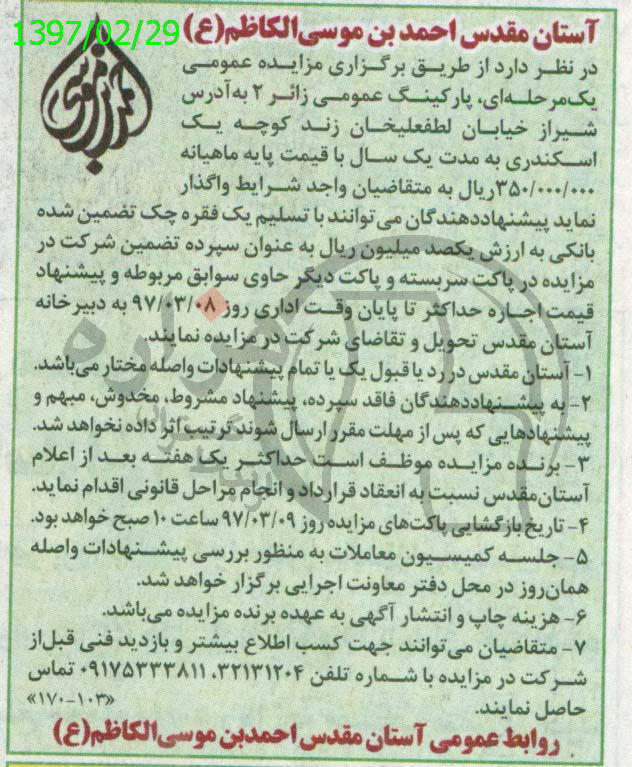 1397/02/29
آستان مقدس احمد بن موسی الکاظم(ع)
در نظر دارد از طریق برگزاری مزایده عمومی
یک‌مرحله‌ای، پارکینگ عمومی زائر ۲ به آدرس
شیراز خیابان لطفعلیخان زند کوچه یک
اسکندری به مدت یک سال با قیمت پایه ماهیانه
۳۵۰/۰۰۰/۰۰۰ریال به متقاضیان واجد شرایط واگذار
نماید پیشنهاددهندگان می‌توانند با تسلیم یک فقره چک تضمین شده
بانکی به ارزش یکصد میلیون ریال به عنوان سپرده تضمین شرکت در
مزایده در پاکت سربسته و پاکت دیگر حاوی سوابق مربوطه و پیشنهاد
قیمت اجاره حداکثر تا پایان وقت اداری روز ۹۷/۰۳/۰۸ به دبیرخانه
آستان مقدس تحویل و تقاضای شرکت در مزایده نمایند.
۱- آستان مقدس در رد یا قبول یک یا تمام پیشنهادات واصله مختار می‌باشد.
۲- به پیشنهاددهندگان فاقد سپرده، پیشنهاد مشروط، مخدوش، مبهم و
پیشنهادهایی که پس از مهلت مقرر ارسال شوند ترتیب اثر داده نخواهد شد.
۳- برنده مزایده موظف است حداکثر یک هفته بعد از اعلام
آستان‌مقدس نسبت به انعقاد قرارداد و انجام مراحل قانونی اقدام نماید.
۴- تاریخ بازگشایی پاکت‌های مزایده روز ۹۷/۰۳/۰۹ ساعت ۱۰ صبح خواهد بود.
۵- جلسه کمیسیون معاملات به منظور بررسی پیشنهادات واصله
همان‌روز در محل دفتر معاونت اجرایی برگزار خواهد شد.
۶- هزینه چاپ و انتشار آگهی به عهده برنده مزایده می‌باشد.
۷- متقاضیان می‌توانند جهت کسب اطلاع بیشتر و بازدید فنی قبل‌از
شرکت در مزایده با شماره تلفن ۳۲۱۳۱۲۰۴، ۰۹۱۷۵۳۳۳۸۱۱ تماس
حاصل نمایند. «۱۷۰-۱۰۳»
روابط عمومی آستان مقدس احمدبن موسی الکاظم(ع)